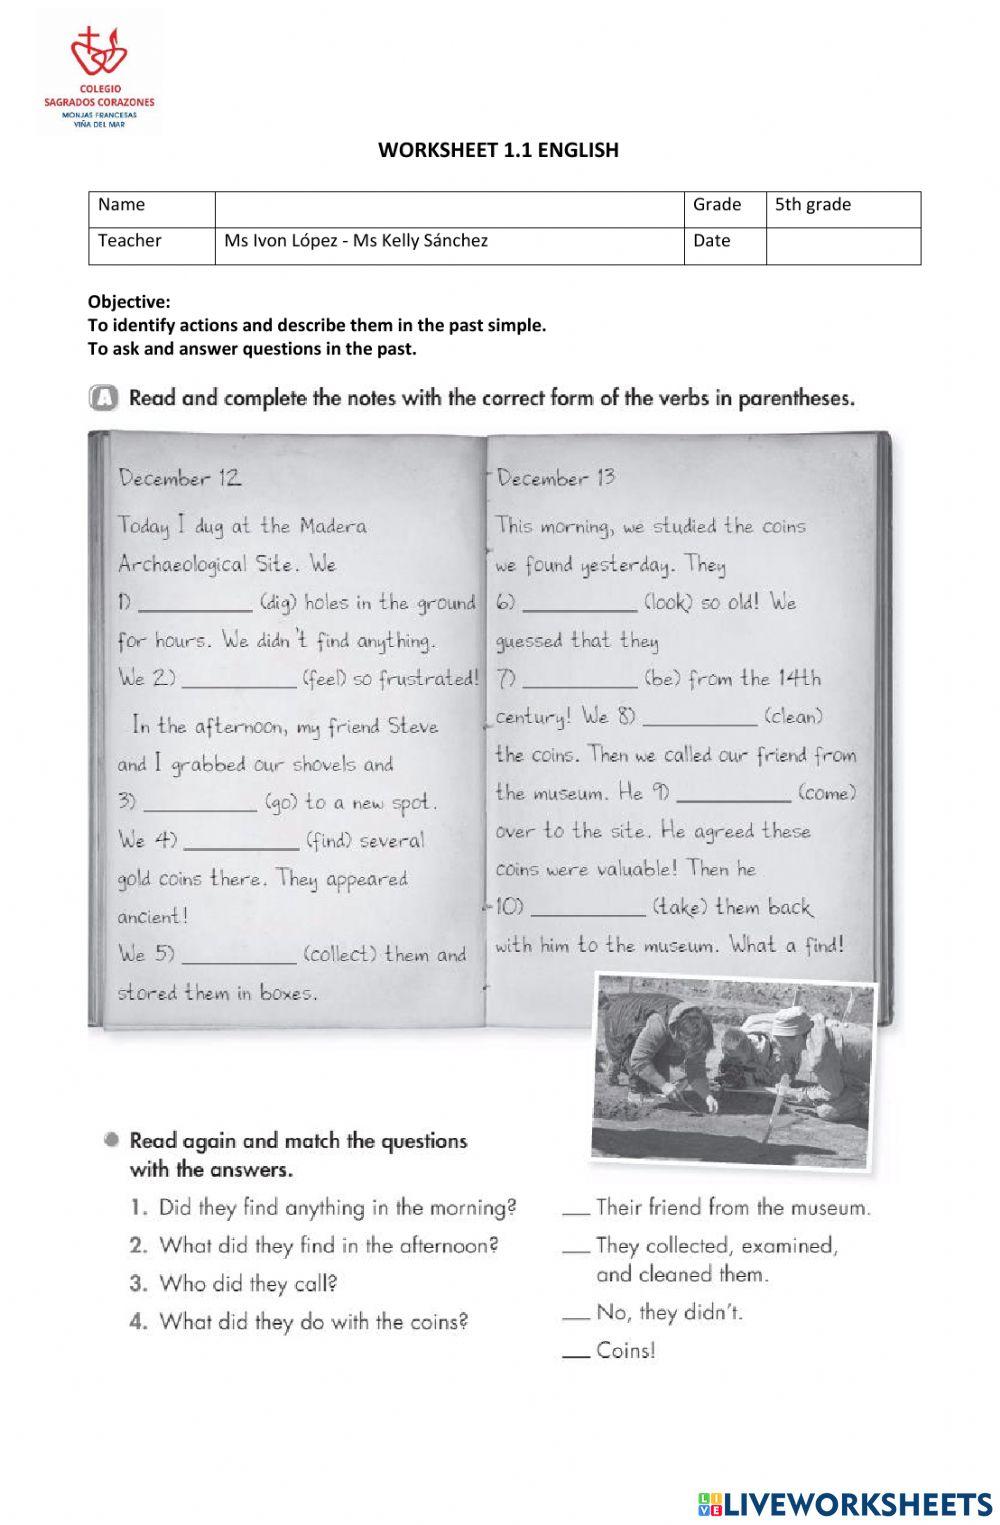 COLEGIO
SAGRADOS CORAZONES
MONJAS FRANCESAS
VIÑA DEL MAR
WORKSHEET 1.1 ENGLISH
Name Grade 5th grade
Teacher Ms Ivon López - Ms Kelly Sánchez Date
Objective:
To identify actions and describe them in the past simple.
To ask and answer questions in the past.
A Read and complete the notes with the correct form of the verbs in parentheses.
December 12
Today I dug at the Madera
Archaeological Site. We
1) ____________ (dig) holes in the ground
for hours. We didn't find anything.
We 2) ____________ (feel) so frustrated!
In the afternoon, my friend Steve
and I grabbed our shovels and
3) ____________ (go) to a new spot.
We 4) ____________ (find) several
gold coins there. They appeared
ancient!
We 5) ____________ (collect) them and
stored them in boxes.
December 13
This morning, we studied the coins
we found yesterday. They
6) ____________ (look) so old! We
guessed that they
7) ____________ (be) from the 14th
century! We 8) ____________ (clean)
the coins. Then we called our friend from
the museum. He 9) ____________ (come)
over to the site. He agreed these
coins were valuable! Then he
10) ____________ (take) them back
with him to the museum. What a find!
Read again and match the questions
with the answers.
1. Did they find anything in the morning?
2. What did they find in the afternoon?
3. Who did they call?
4. What did they do with the coins?
___ Their friend from the museum.
___ They collected, examined,
and cleaned them.
___ No, they didn't.
___ Coins!
LIVE LIVEWORKSHEETS